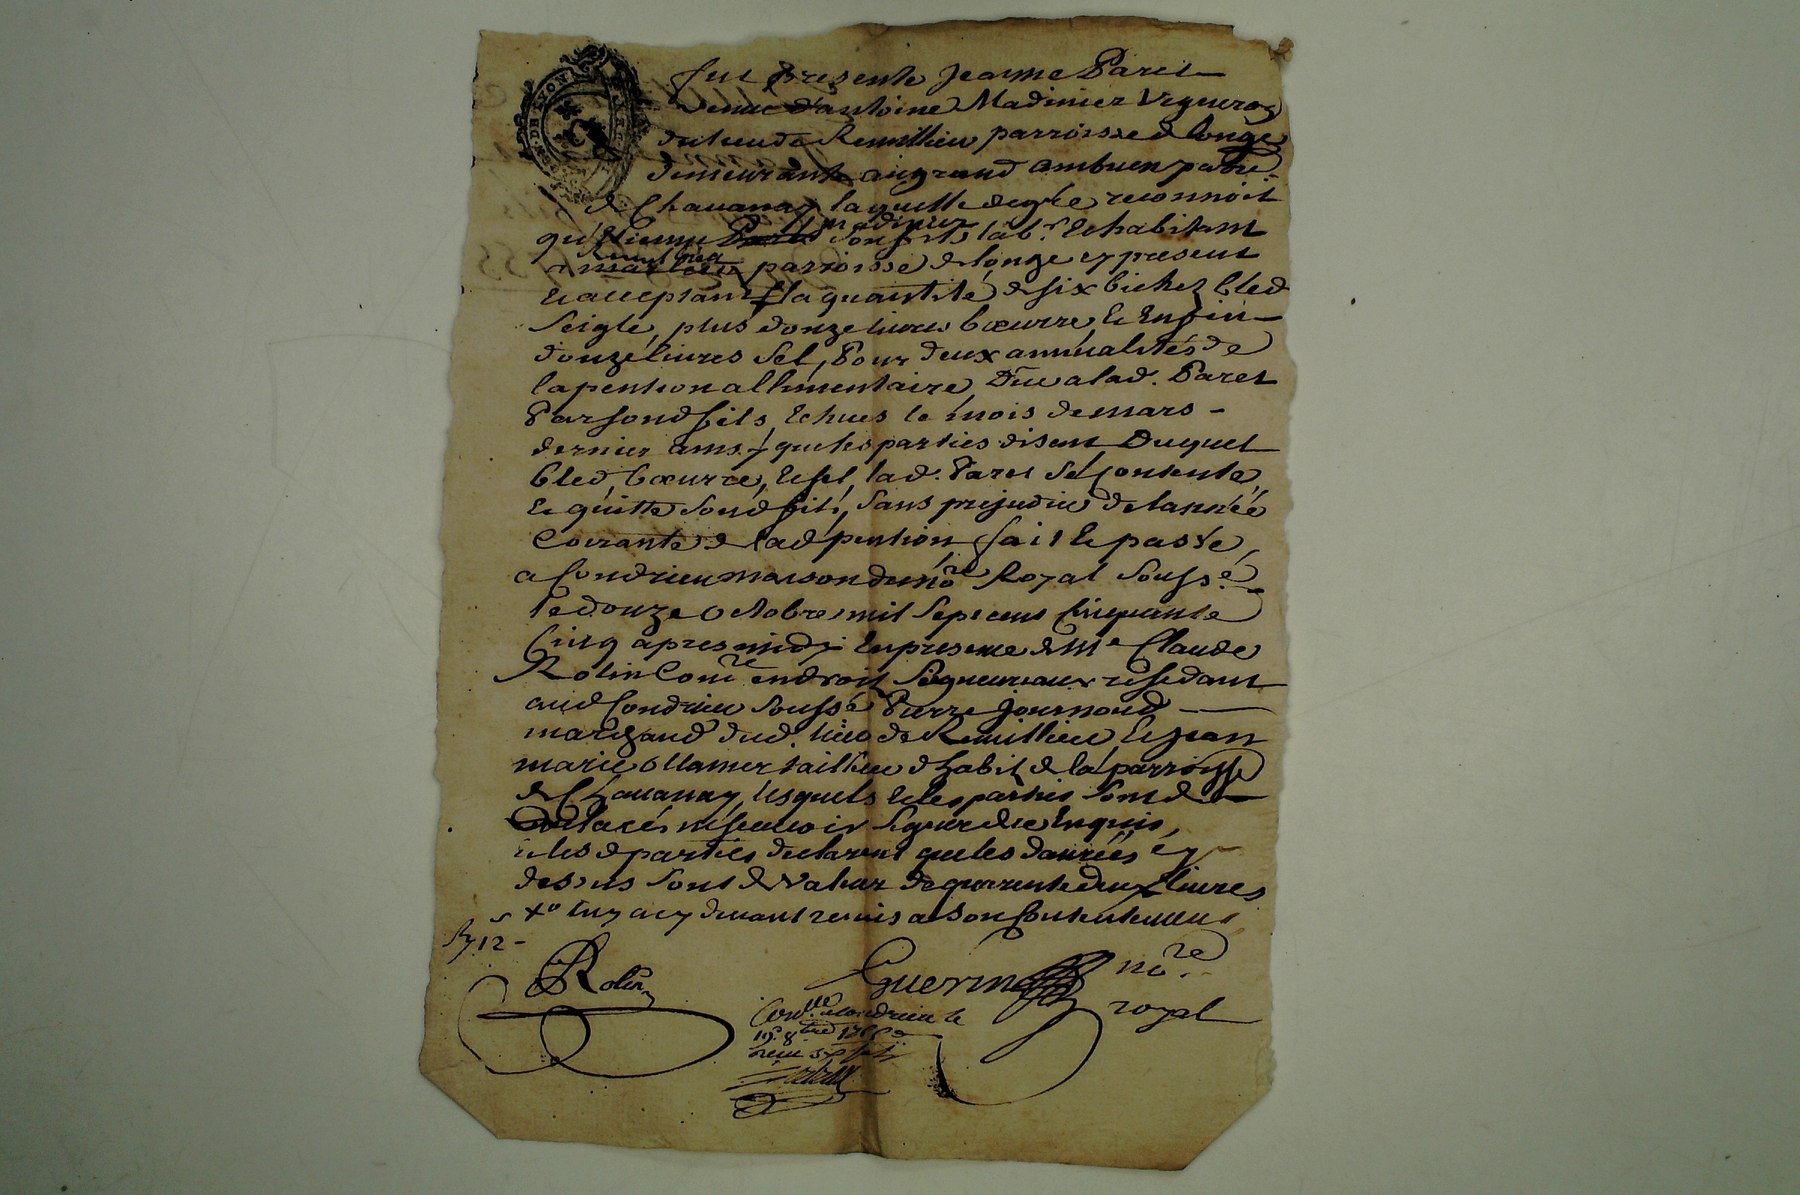 Fut presente Jeanne Paret
veuve d'antoine Madinier Vigneron
du lieu de Remillieu parroisse de longe
demeurante au grand ambuen parre
de Chavanay, laquelle de gré reconnoit
qu'Etienne madinier son fils lab.r et habitant
a Remillieu parroisse de longe cy present
et acceptant la quantité de six bichez bled
seigle, plus douze livres bœurre, et enfin
douze livres sel, pour deux annualités de
la pention allimentaire düe a lad. Paret
par sond fils, echues le mois de mars
dernier ainsy que les parties disent Duquel
bled, bœurre, et sel, lad. Paret se contente,
et quitte sond fils, sans prejudice de l'année
Courante de lad pention, fait et passé,
a Condrieu maison du no.re Royal soussé
le douze octobre mil sept cent cinquante
cinq apres midy En presence de Me Claude
Rolin Com.re en droit seigneuriaux residant
aud Condrieu soussé Pierre Journoud
marchand dud. lieu de Remillieu, et jean
marie ollanier tailleur d'habit de la parroisse
de Chavanay, lesquels et les parties ont
declaré ne scavoir signer de ce enquis,
et les d parties declarent que les danrées cy
dessus sont de valeur de quarente deux livres
cy devant remis a son contentement
12
Rolin
Guerin no.re
royal
Con.lle a Condrieu le
19.e 8.bre 1755